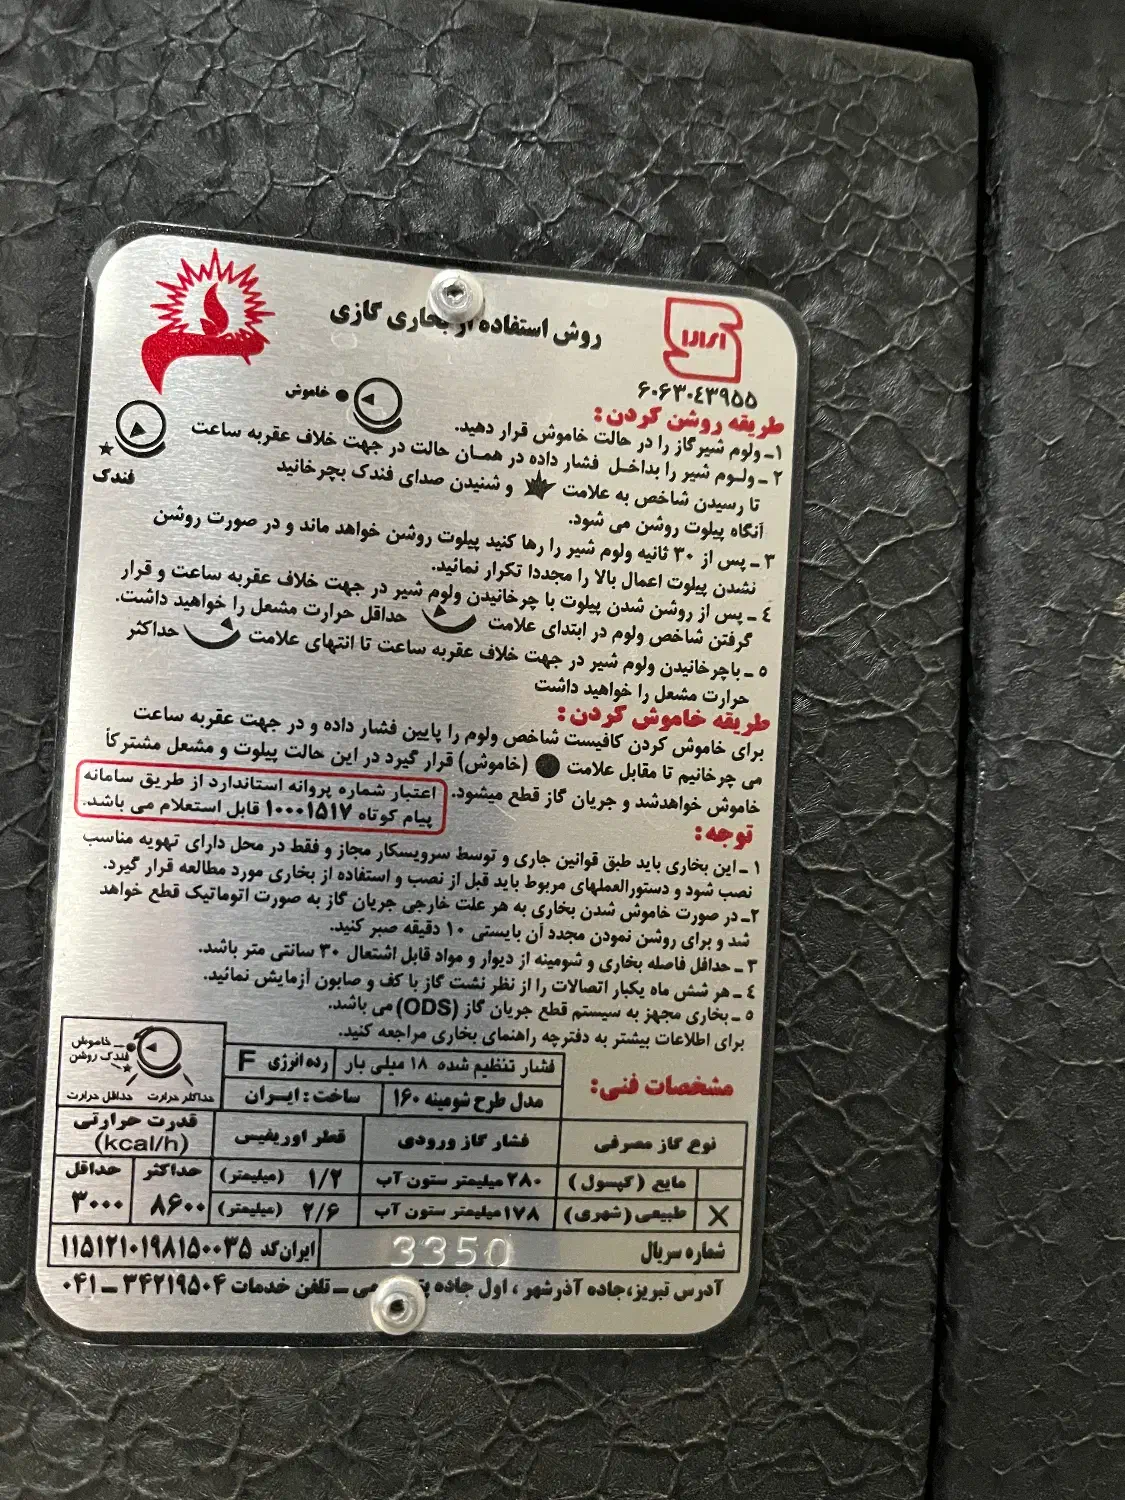 روش استفاده از بخاری گازی
۶۰۶۳۰۴۳۹۵۵
طریقه روشن کردن:
خاموش
فندک
۱ـ ولوم شیر گاز را در حالت خاموش قرار دهید.
۲ ـ ولـوم شیر را بداخـل فشار داده در همـان حالت در جهت خلاف عقربه ساعت
تا رسیدن شاخص به علامت و شنیدن صدای فندک بچرخانید
آنگاه پیلوت روشن می شود.
۳ ـ پس از ۳۰ ثانیه ولوم شیر را رها کنید پیلوت روشن خواهد ماند و در صورت روشن
نشدن پیلوت اعمال بالا را مجددا تکرار نمائید.
٤ ـ پس از روشن شدن پیلوت با چرخانیدن ولوم شیر در جهت خلاف عقربه ساعت و قرار
گرفتن شاخص ولوم در ابتدای علامت حداقل حرارت مشعل را خواهید داشت.
۵ ـ باچرخانیدن ولوم شیر در جهت خلاف عقربه ساعت تا انتهای علامت حداکثر
حرارت مشعل را خواهید داشت
طریقه خاموش کردن:
برای خاموش کردن کافیست شاخص ولوم را پایین فشار داده و در جهت عقربه ساعت
می چرخانیم تا مقابل علامت ● (خاموش) قرار گیرد در این حالت پیلوت و مشعل مشترکاً
خاموش خواهدشد و جریان گاز قطع میشود.
اعتبار شماره پروانه استاندارد از طریق سامانه
پیام کوتاه ۱۰۰۰۱۵۱۷ قابل استعلام می باشد.
توجه:
۱ ـ این بخاری باید طبق قوانین جاری و توسط سرویسکار مجاز و فقط در محل دارای تهویه مناسب
نصب شود و دستورالعملهای مربوط باید قبل از نصب و استفاده از بخاری مورد مطالعه قرار گیرد.
۲ـ در صورت خاموش شدن بخاری به هر علت خارجی جریان گاز به صورت اتوماتیک قطع خواهد
شد و برای روشن نمودن مجدد آن بایستی ۱۰ دقیقه صبر کنید.
۳ ـ حداقل فاصله بخاری و شومینه از دیوار و مواد قابل اشتعال ۳۰ سانتی متر باشد.
٤ ـ هر شش ماه یکبار اتصالات را از نظر نشت گاز با کف و صابون آزمایش نمائید.
۵ ـ بخاری مجهز به سیستم قطع جریان گاز (ODS) می باشد.
برای اطلاعات بیشتر به دفترچه راهنمای بخاری مراجعه کنید.
مشخصات فنی:
فشار تنظیم شده ۱۸ میلی بار رده انرژی F
مدل طرح شومینه ۱۶۰ ساخت : ایـران
خاموش
فندک روشن
حداکثر حرارت حداقل حرارت
نوع گاز مصرفی فشار گاز ورودی قطر اوریفیس قدرت حرارتی (kcal/h)
حداکثر حداقل
مایع (کپسول) ۲۸۰ میلیمتر ستون آب ۱/۲ (میلیمتر)
X طبیعی (شهری) ۱۷۸ میلیمتر ستون آب ۲/۶ (میلیمتر) ۸۶۰۰ ۳۰۰۰
شماره سریال 3350 ایران کد ۱۱۵۱۲۱۰۱۹۸۱۵۰۰۳۵
آدرس تبریز،جاده آذرشهر ، اول جاده ـ تلفن خدمات ۳۴۲۱۹۵۰۴ ـ ۰۴۱